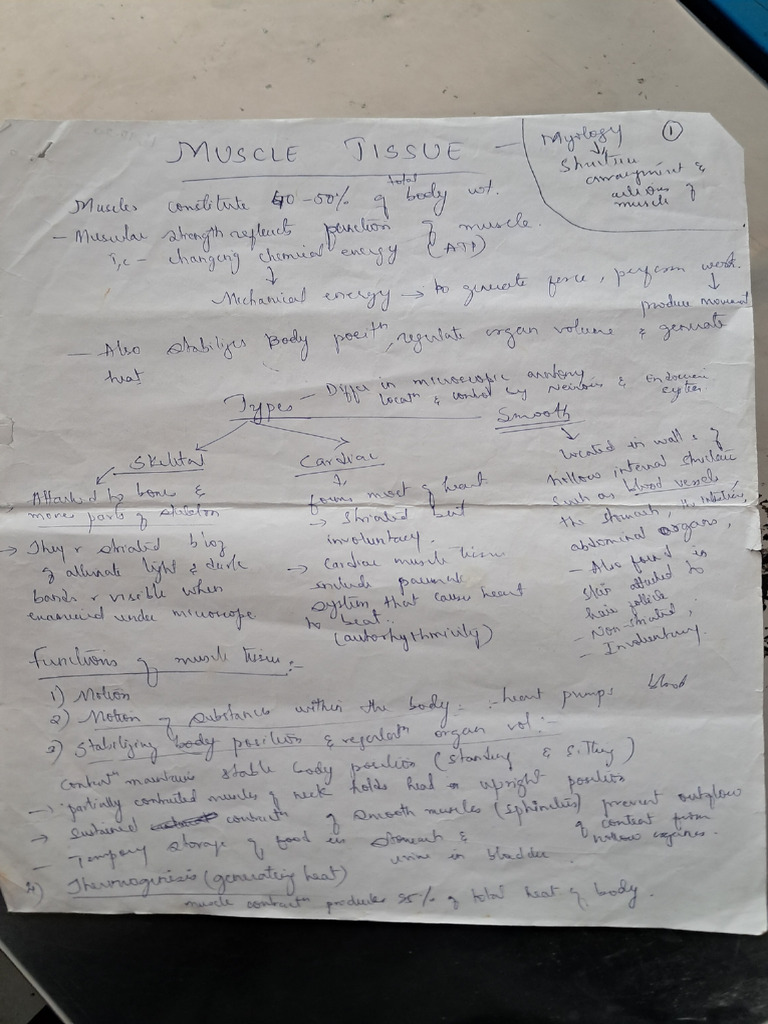 MUSCLE TISSUE —
①
Myology
↓
Structure
arrangement &
actions of
muscle
Muscles constitute 40-50% of total body wt.
– Muscular strength reflects function of muscle.
i,e – changing chemical energy (ATP)
↓
Mechanical energy → to generate force, perform work.
↓
produce movement
– Also stabilizes Body positn, regulate organ volume & generate
heat
Types – Differ in microscopic anatomy
locatn & control by Nervous & Endocrine
system.
Skeletal
→ Attached to bone &
move parts of skeleton
→ They r striated bcoz
of alternate light & dark
bands r visible when
examined under microscope
Cardiac
↓
forms most of heart
→ Striated but
involuntary.
→ Cardiac muscle tissue
include pacemak
system that cause heart
to beat.
(autorhythmicity)
Smooth
↓
Located in walls of
hollow internal structure
such as blood vessels,
the stomach, the intestine,
abdominal organs,
– Also found in
skin attached to
hair follicle
– Non-striated,
– Involuntary.
Functions of muscle tissue:-
1) Motion
2) Motion of substance within the body:- heart pumps blood
3) Stabilizing body position & regulatn organ vol:-
Contractn maintains stable body position (standing & sitting)
→ partially contracted muscles of neck holds head upright position
→ sustained contractn of smooth muscles (sphincters) prevent outflow
of content from
hollow organs.
– Tempory storage of food in stomach &
urine in bladder.
4) Thermogenesis (generating heat)
muscle contractn produces 85% of total heat of body.